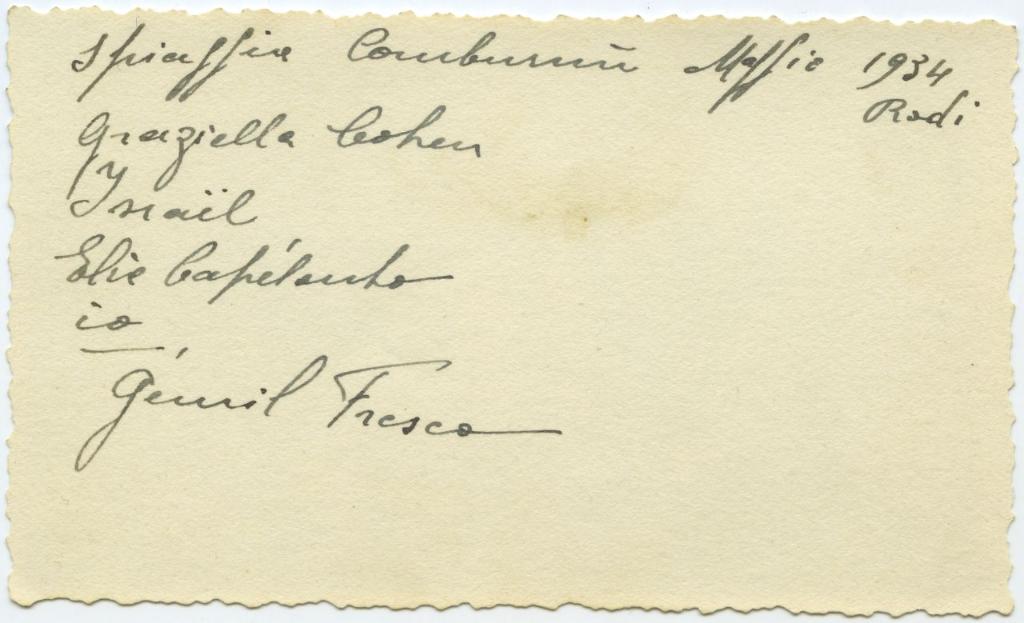 Spiaffia Comburnù Maffio 1934
Rodi
Graziella Cohen
Israël
Elie Capélouto
io
Gémil Fresco